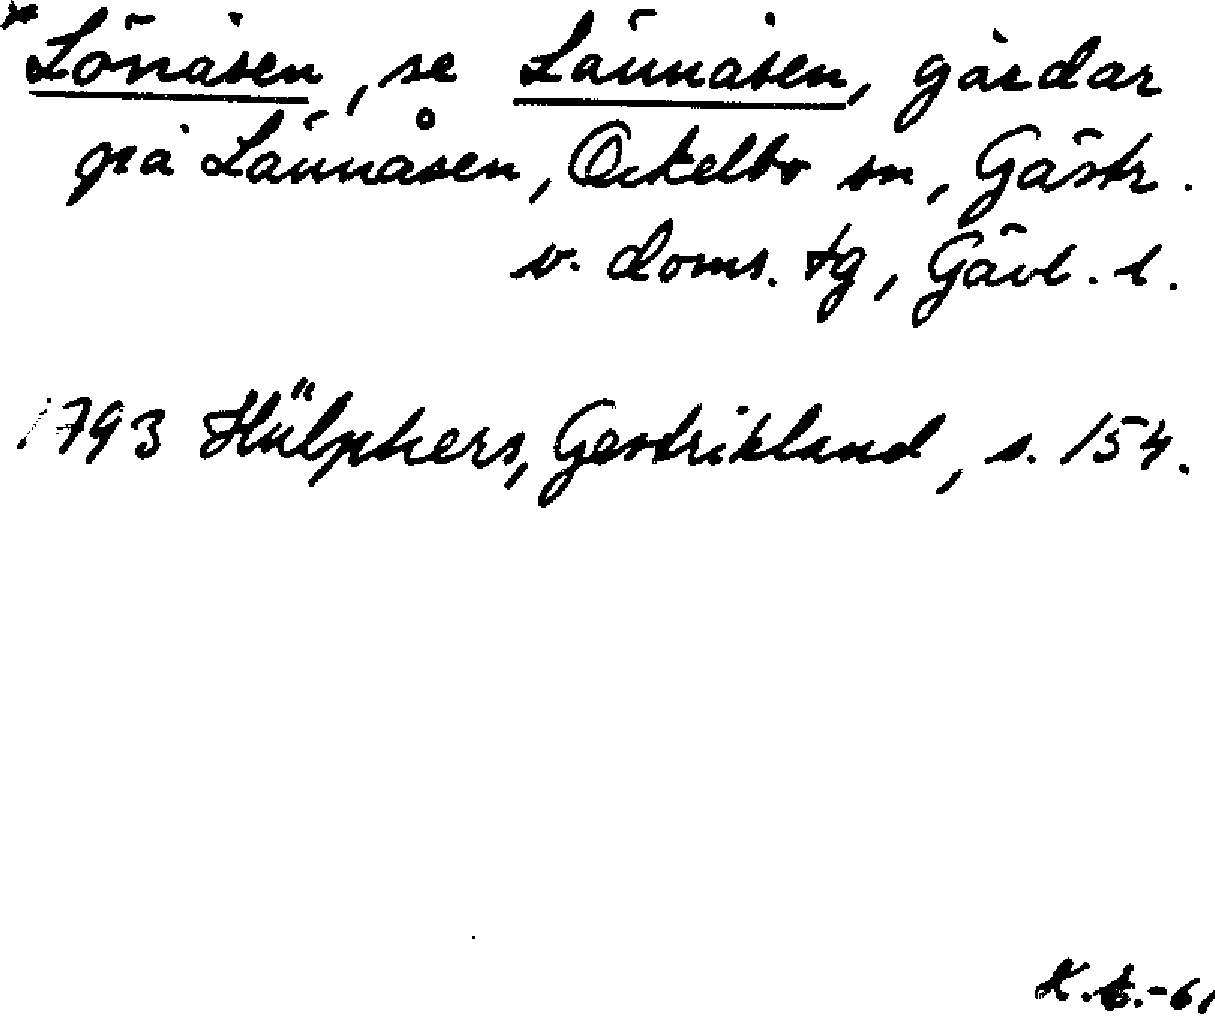 *Lönåsen, se Lännåsen, gårdar
på Lännåsen, Ockelbo sn, Gästr.
v. doms. tg, Gävl. l.
1793 Hülphers, Gestrikland, s. 154.